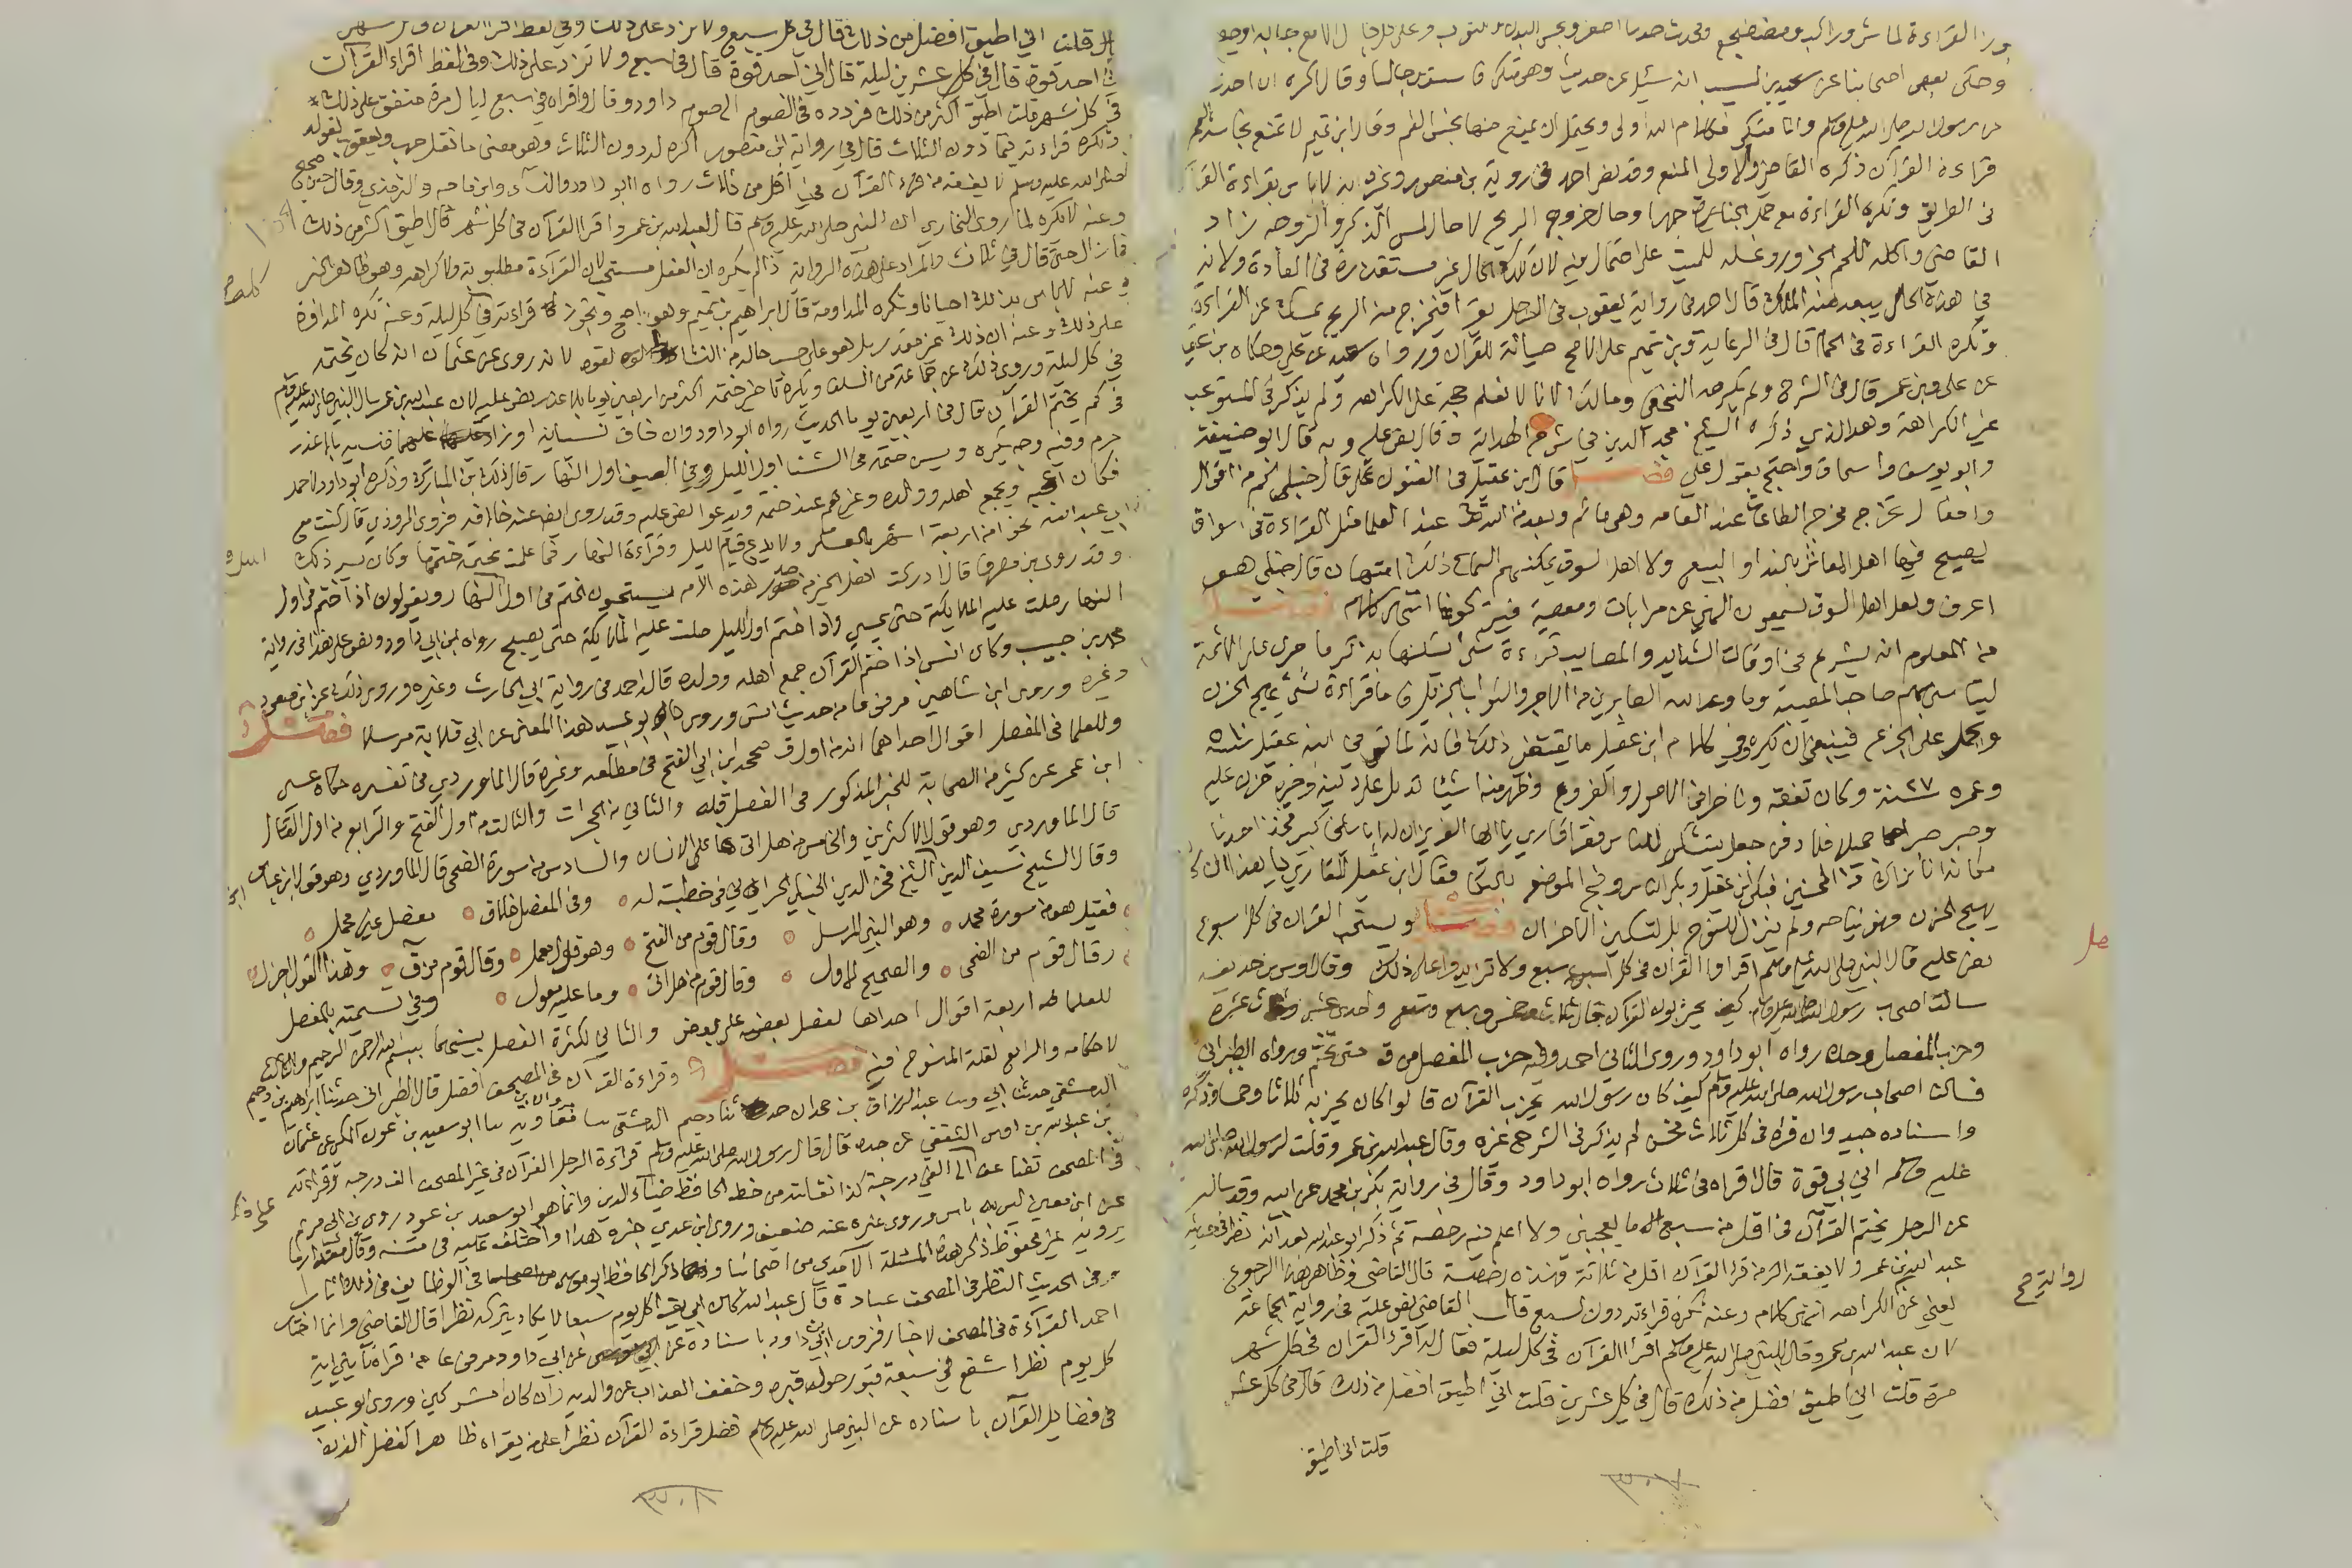 وحكى بعض اصحابنا عن سعيد بن المسيب انه سئل عن حديث وهو متكى فاستوى جالسا وقال اكره ان احدث
عن رسول الله صلى الله عليه وسلم وانا متكى فكلام الله اولى ويحتمل ان يمنع منها نجس الفم وقال ابن تميم لا تمنع نجاسة الفم
قراءة القرآن ذكره القاضي والاولى المنع وقد نص احمد في رواية بن منصور وغيره انه لا باس بقراءة القرآن
في الطريق وتكره القراءة مع حمل الجنازة جهرا وحال خروج الريح لا حال لمس الذكر والزوجه زاد
القاضي واكله للحم الجزور وغسله للميت على احتمال فيه لان تلك الحال غير مستقذرة في العادة ولانه
في هذه الحال يبعد منه الملك قال احمد في رواية يعقوب في الرجل يقرا فيخرج منه الريح يمسك عن القراءة
وتكره القراءة في الحمام قال في الرعاية وبن تميم على الاصح صيانة للقرآن ورواه سعيد عن علي وحكاه بن عقيل
عن علي وبن عمر قال في الشرح ولم يكرهه النخعي ومالك لانا لا نعلم حجة على الكراهه ولم يذكر في المستوعب
غير الكراهة وهو الذي ذكره الشيخ مجد الدين في شرح الهداية وقال نص عليه وبه قال ابو حنيفة
وابو يوسف واسحاق واحتج بقول علي فصل قال ابن عقيل في الفنون قال حنبلي كم من اقوال
وافعال تخرج مخرج الطاعات عند العامه وهي ماثم وبعد من الله عند العلما مثل القراءة في اسواق
يصيح فيها اهل المعاش بالنداء والبيع ولا اهل السوق يمكنهم السماع ذلك امتهان قال حنبلي هو
اعرف ولعل اهل السوق يسمعون النهي عن مرابات ومعصية فيتركونها انتهى كلامه فصل
من المعلوم انه يشرع في اوقات الشدايد والمصايب قراءة شي يسكنها بذكر ما جرى على الائمة
ليتاسى بهم صاحب المصيبة وما وعد الله الصابرين من الاجر والثواب الجزيل فاما قراءة شي يهيج الحزن
ويحمل على الجزع فينبغي ان يكره وفي كلام ابن عقيل ما يقتضي ذلك فانه لما توفي ابنه عقيل سنة ٥١٠
وعمره ٢٧ سنة وكان تفقه وناظر في الاصول والفروع وظهر منه اشيا تدل على دينه وخيره حزن عليه
وصبر صبرا جميلا فلما دفن جعل يتشكر للناس فقرا قاري يا ايها العزيز ان له ابا شيخا كبيرا فخذ احدنا
مكانه انا نراك من المحسنين فبكى ابن عقيل وبكى الناس وضج الموضع بالبكا فقال ابن عقيل للقاري يا هذا ان كان
يهيج الحزن فهو نياحه ولم ينزل للنوح بل لتسكين الاحزان فصل ويستحب القرآن في كل اسبوع
نص عليه قال النبي صلى الله عليه وسلم اقراوا القرآن في كل اسبوع سبع ولا تزايدوا على ذلك وقال اوس بن حذيفه
سالت اصحاب رسول الله صلى الله عليه وسلم كيف يحزبون القرآن قال ثلاث وخمس وسبع وتسع واحدى عشر وثلاث عشرة
وحزب المفصل وحده رواه ابو داود وروى الثاني احمد وفيه حزب المفصل من ق حتى تختم ورواه الطبراني
فسالت اصحاب رسول الله صلى الله عليه وسلم كيف كان رسول الله يحزب القرآن قالوا كان يحزبه ثلاثا وخمسا فذكره
واسناده جيد وان قراه في كل ثلاث فحسن لم يذكر في الشرح غيره وقال عبد الله بن عمر وقلت لرسول الله صلى الله
عليه وسلم اني بي قوة قال اقراه في ثلاث رواه ابو داود وقال في رواية بكر بن محمد عن ابيه وقد ساله
عن الرجل يختم القرآن في اقل من سبع قال ما يعجبني ولا اعلم فيه رخصة ثم ذكر ابو عبد الله بعد انه نظر في حديث
عبد الله بن عمرو لا يفقه الرجل من قرا القرآن اقل من ثلاثة فهذه رخصة قال القاضي فظاهر هذا الرجوع
يعني عن الكراهه انتهى كلامه وعنه تكره قراءته دون السبع قال القاضي نص عليه في رواية الجماعة
لان عبد الله بن عمرو قال للنبي صلى الله عليه وسلم اقرا القرآن في كل ليلة فقال له اقرا القرآن في كل شهر
مرة قلت اني اطيق افضل من ذلك قال في كل عشرين قلت اني اطيق افضل من ذلك قال في كل عشر
قلت اني اطيق
قال قلت اني اطيق افضل من ذلك قال في كل سبع ولا تزد على ذلك وفي لفظ اقرا القرآن في كل شهر
اني اجد قوة قال في كل عشرين ليلة قال اني اجد قوة قال في سبع ولا تزد على ذلك وفي لفظ اقراء القرآن
في كل شهر قلت اطيق اكثر من ذلك فردده في الصوم الى صوم داود وقال واقراه في سبع ليال مرة متفق على ذلك
وتكره قراءته فيما دون الثلاث قال في رواية ابن منصور اكره له دون الثلاث وهو معنى ما نقل حرب ويعقوب لقوله
صلى الله عليه وسلم لا يفقه من قراء القرآن في اقل من ثلاث رواه ابو داود والنسآي وابن ماجه والترمذي وقال حسن صحيح
وعنه لا تكره لما روى البخاري ان النبي صلى الله عليه وسلم قال لعبد الله بن عمرو اقرا القرآن في كل شهر قال اطيق اكثر من ذلك
فما زال حتى قال في ثلاث والمراد على هذه الرواية ذا لم يكره ان الفعل مستحب لان القرآءة مطلوبة ولا كراهه وهو ظاهر الخبر
وعنه لا باس بذلك احيانا وتكره المداومة قال ابراهيم بن تميم وهو اصح ويجوز قراءته في كل ليلة وعنه تكره المداومة
على ذلك وعنه ان ذلك غير مقدر بل هو على حسب حاله من النشاط والقوه لانه روى عن عثمان انه كان يختمه
في كل ليلة وروى ذلك عن جماعة من السلف ويكره تاخير ختمه اكثر من اربعين يوما بلا عذر نص عليه لان عبد الله بن عمر سال النبي صلى الله عليه وسلم
في كم يختم القرآن قال في اربعين يوما الحديث رواه ابو داود وان خاف نسيانه او زاد عليها فنسيه بلا عذر
حرم وفيه وجه يكره ويسن ختمه في الشتا اول الليل وفي الصيف اول النهار قال ذلك بن المبارك وذكره ابو داود لاحمد
فكان اعجبه ويجمع اهله وولده وغيرهم عند ختمه ويدعوا نص عليه وقد روى ايضا عنه خلافه فروى المروذي قال كنت مع
ابي عبد الله نحوا من اربعة اشهر بالعسكر ولا يدع قيام الليل وقرآءة النهار فما علمت بختمة ختمها وكان يسر ذلك
وقد روى بن مصرف قال ادركت اهل الخير من صدر هذه الامه يستحبون الختم في اول النهار ويقولون اذا ختم في اول
النهار صلت عليه الملايكة حتى يمسي واذا ختم اول الليل صلت عليه الملايكة حتى يصبح رواه ابن ابي داود ونص على هذا في رواية
محمد بن حبيب وكان انس اذا ختم القرآن جمع اهله وولده قال احمد في رواية ابي الحارث وغيره وروى ذلك عن ابن مسعود
وغيره وروى ابن شاهين مرفوعا من حديث انس وروى ابو عبيد هذا المعنى عن ابي قلابة مرسلا فصل
وللعلما في المفصل اقوال احداها انه من اول ق صححه ابن ابي الفتح في مطلعه وغيره قال الماوردي في تفسره حكاه عيسى
ابن عمر عن كثير من الصحابة للخبر المذكور في الفصل قبله والثاني من الحجرات والثالث من اول الفتح والرابع من اول القتال
قال الماوردي وهو قول الاكثرين والخامس من هل اتى على الانسان والسادس من سورة الضحى قال الماوردي وهو قول ابن عباس
وقال الشيخ سيف الدين الشيخ فخر الدين الحنبلي الحراني في خطبته له وفي المفصل خلاف مفصل غير مجمل
فقيل هو من سورة محمد وهو النبي المرسل وقال قوم من الفتح وهو قول معمل وقال قوم من ق وهذا القول اجزل
وقال قوم من الضحى والصحيح الاول وقال قوم من هل اتى وما عليه معول وفي تسميته بالمفصل
للعلما اربعة اقوال احداها لفصل بعضه على بعض والثاني لكثرة الفصل بينهما ببسم الله الرحمن الرحيم والثالث
لاحكامه والرابع لقلة المنسوخ فيه فصل وقراءة القرآن في المصحف افضل قال الطبراني حدثنا ابراهيم بن دحيم
الدمشقي حدثنا ابي وحدثنا عبد الرزاق بن حمدان ثنا دحيم الدمشقي ثنا مروان بن معاويه ثنا ابو سعيد بن عون المكي عن عثمان
بن عبد الله بن اوس الثقفي عن جده قال قال رسول الله صلى الله عليه وسلم قرآءة الرجل القرآن في غير المصحف الف درجه وقرآءته
في المصحف تضاعف الى الفي درجة كذا نقلته من خط الحافظ ضياء الدين وانما هو ابو سعيد بن عوذ روى بن ابي مريم
عن ابن معين ليس به باس وروى غيره عنه ضعيف وروى ابن عدي خبره هذا واختلف عليه في متنه وقال مقدار ما
يرويه غير محفوظ ذكر هذه المسئلة الآمدي من اصحابنا وذكر الحافظ ابو موسى في الوظايف في ذلك اثارا
وفي الحديث النظر في المصحف عبادة قال عبد الله كان ابي يقرا كل يوم سبعا لا يكاد يتركه نظرا قال القاضي وانما اختار
احمد القرآءة في المصحف لاخبار فروى ابن ابي داود باسناده عن ابي داود مرفوعا من قراه مايتي اية
كل يوم نظرا شفع في سبعة قبور حول قبره وخفف العذاب عن والديه وان كانا مشركين وروى ابو عبيد
في فضايل القرآن باسناده عن النبي صلى الله عليه وسلم فضل قراءة القرآن نظرا على من يقراه ظاهرا كفضل الفريضة